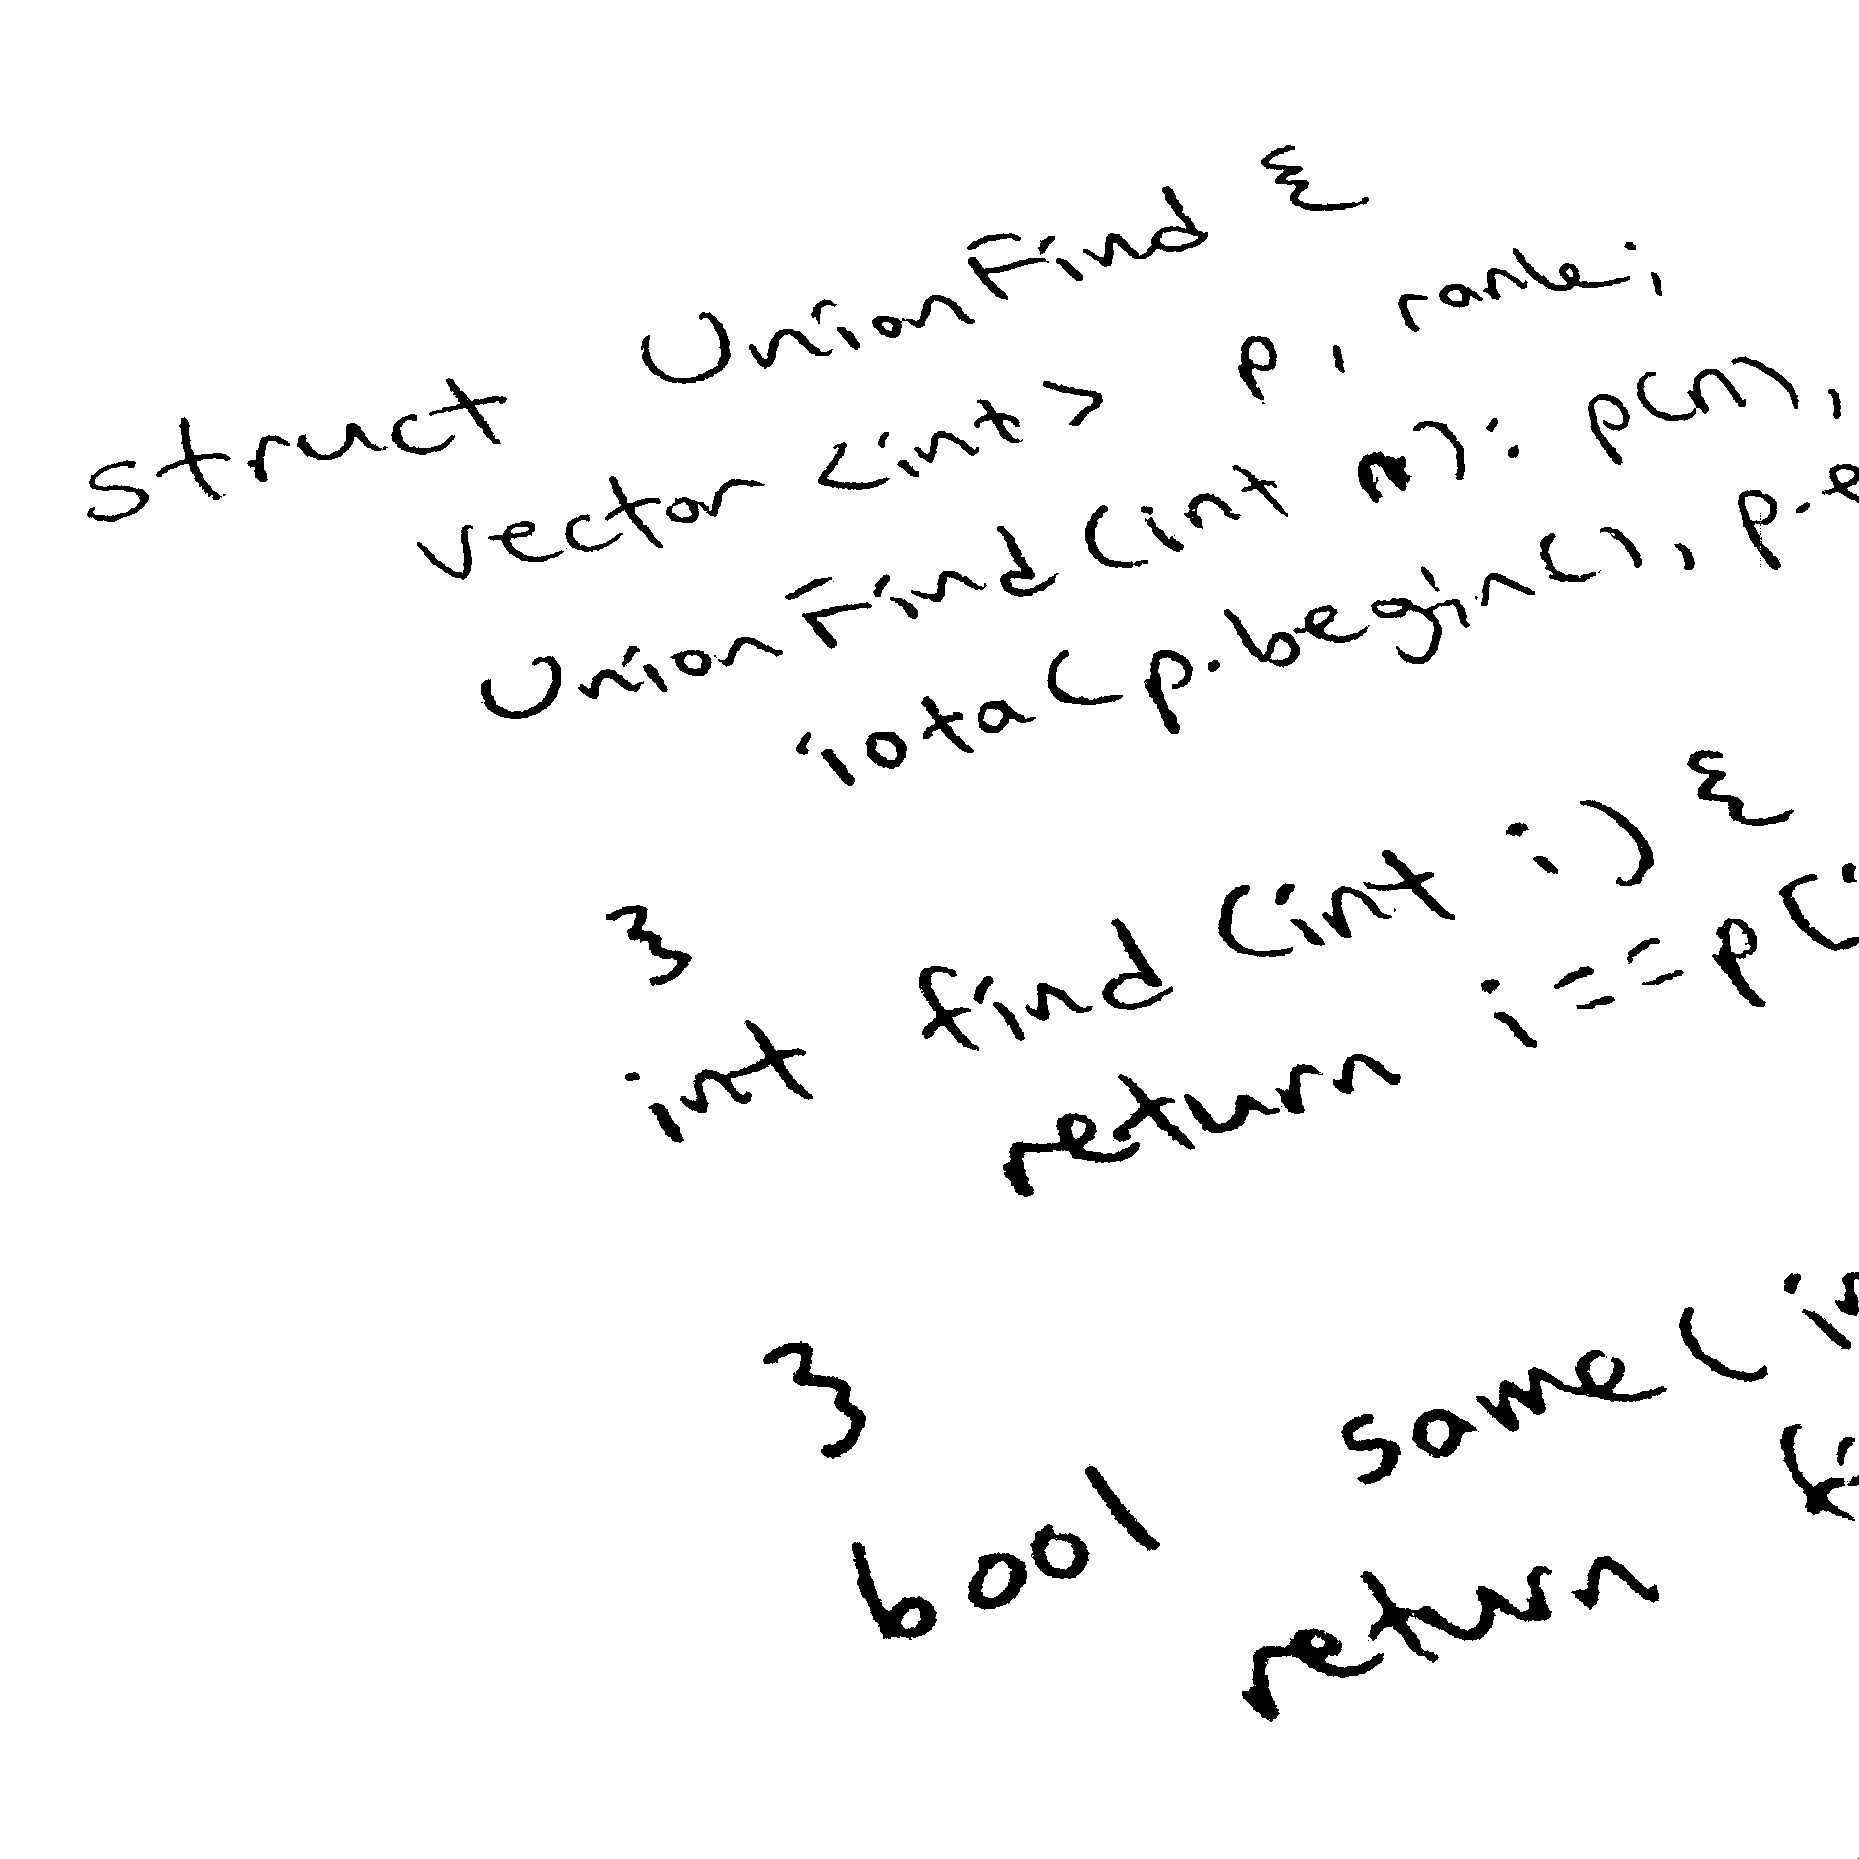 struct UnionFind {
vector <int> p, rank;
UnionFind (int n): p(n),
iota(p.begin(), p.e
}
int find (int i) {
return i==p[i
}
bool same(in
return